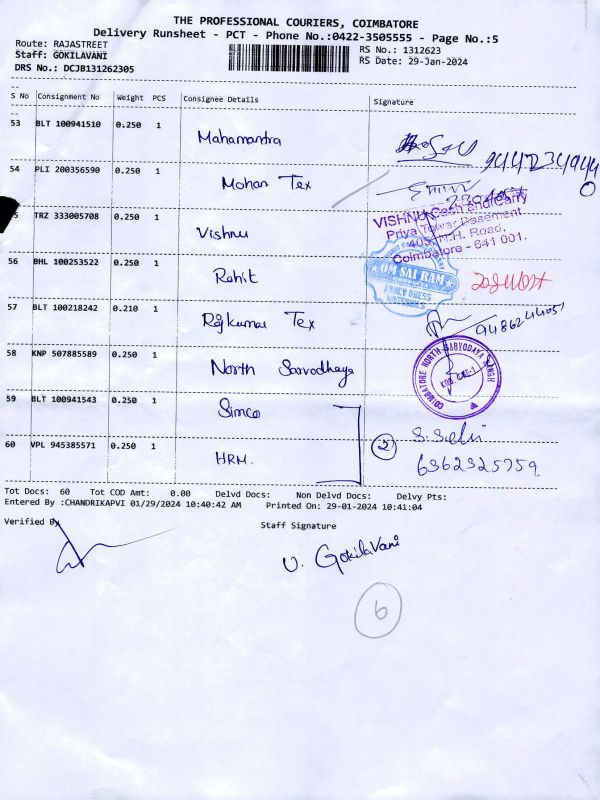 THE PROFESSIONAL COURIERS, COIMBATORE
Delivery Runsheet - PCT - Phone No.:0422-3505555 - Page No.:5
Route: RAJASTREET
Staff: GOKILAVANI
DRS No.: DCJB131262305
RS No.: 1312623
RS Date: 29-Jan-2024
S No Consignment No Weight PCS Consignee Details Signature
53 BLT 100941510 0.250 1 Mahamantra
54 PLI 200356590 0.250 1 Mohan Tex
TRZ 333005708 0.250 1 Vishnu
VISHNU Cash and Carry
Priya Tower Basement
405, N.H. Road,
Coimbatore - 641 001.
56 BHL 100253522 0.250 1 Rohit
OM SAI RAM
FANCY DRESS
57 BLT 100218242 0.210 1 Rajkumar Tex
9486244051
58 KNP 507885589 0.250 1 North Sarvodhaya
COIMBATORE NORTH SARVODAYA SANGH
59 BLT 100941543 0.250 1 Simco
60 VPL 945385571 0.250 1 HRM.
2 S. Selvi
6362325759
Tot Docs: 60 Tot COD Amt: 0.00 Delvd Docs: Non Delvd Docs: Delvy Pts:
Entered By :CHANDRIKAPVI 01/29/2024 10:40:42 AM Printed On: 29-01-2024 10:41:04
Verified By
Staff Signature
U. Gokilavani
6